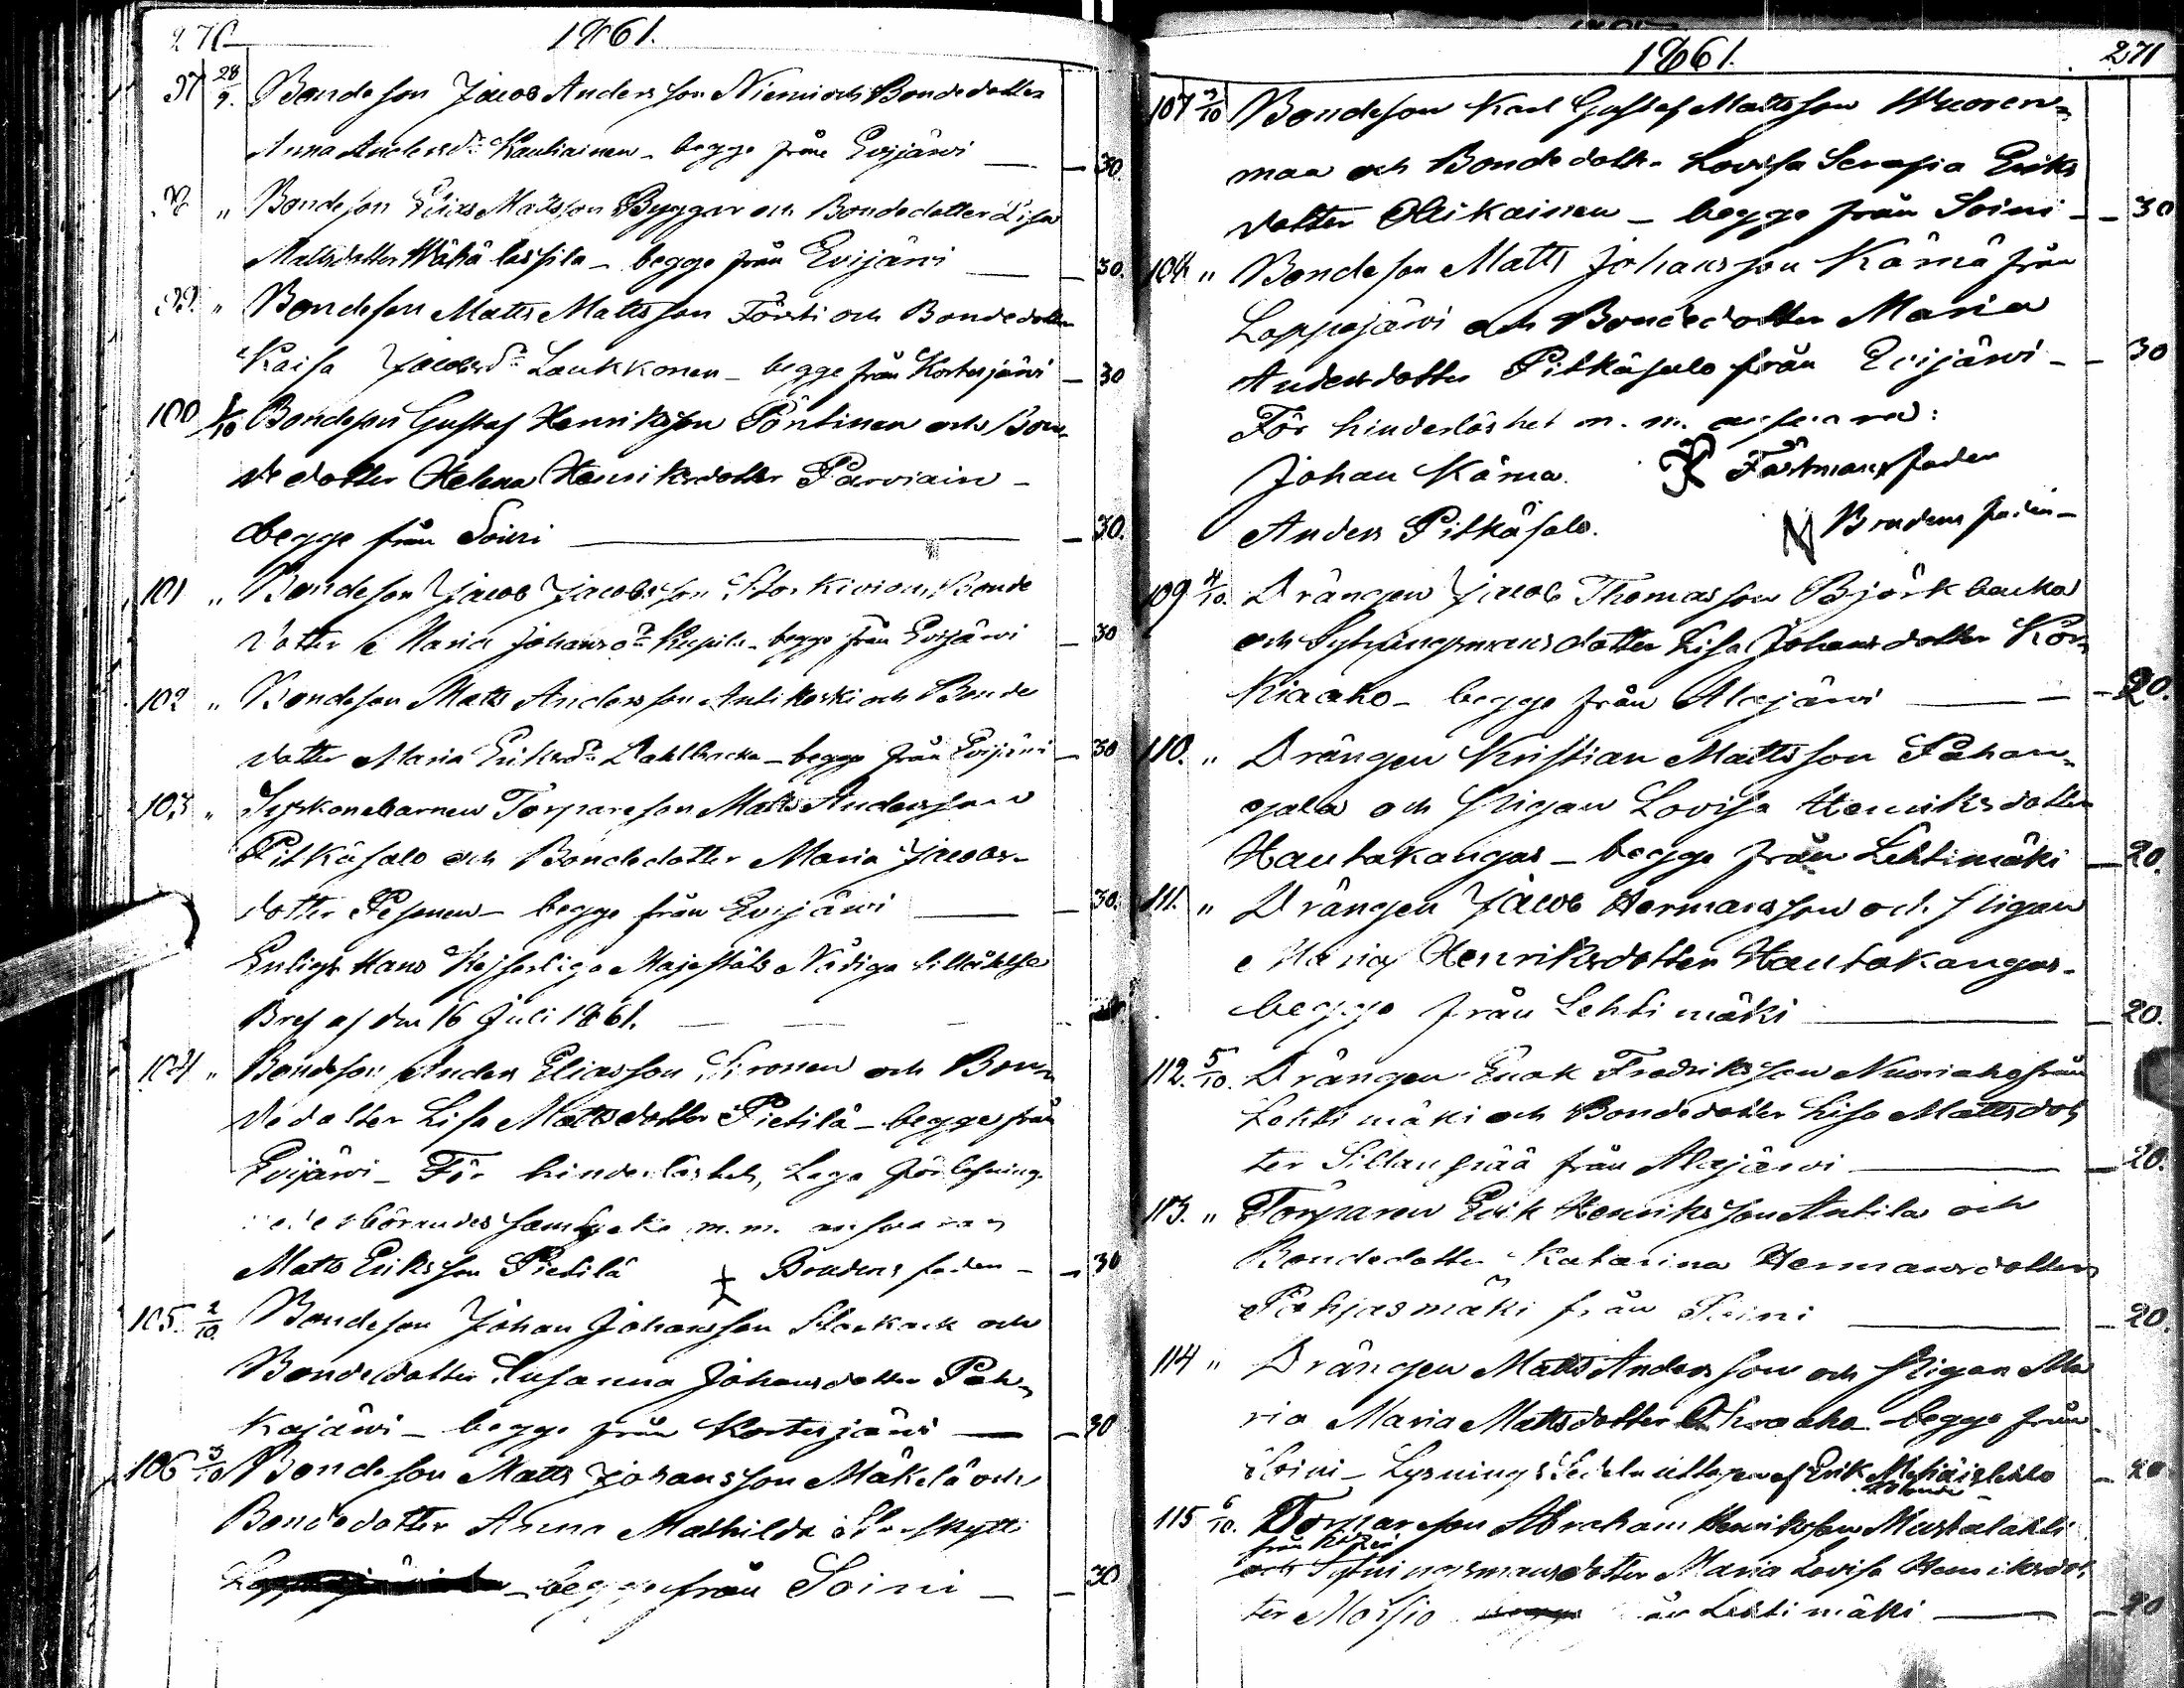 270 1861.
97 28/9. Bondeson Jacob Andersson Niemi och Bondedotter
Anna Andersdr Kauhainen - begge från Evijärvi — 30.
98 " Bondeson Elias Mattsson Byggar och Bondedotter Lisa
Mattsdotter Wähälassila - begge från Evijärvi — 30.
99. " Bondeson Matts Mattsson Försti och Bondedotter
Kaisa Jacobsdr Laukkonen - begge från Kortesjärvi — 30
100 1/10 Bondeson Gustaf Henriksson Pöntinen och Bon-
dedotter Helena Henriksdotter Parviain -
begge från Soini — 30.
101 " Bondeson Jacob Jacobsson Storkivi och Bonde
dotter Maria Johansdr - begge från Evijärvi — 30
102 " Bondeson Matts Andersson Antikoski och Bonde
dotter Maria Eriksdr Dahlbacka - begge från Evijärvi — 30
103 " Syskonebarnen Torpareson Matts Andersson
Pitkäsalo och Bondedotter Maria Jacobs-
dotter Pesonen - begge från Evijärvi — 30.
Enligt Hans Kejserliga Majestäts Nådiga tillåtelse
Bref af den 16 Juli 1861.
104 " Bondeson Anders Eliasson Sironen och Bon-
dedotter Lisa Mattsdotter Pietilä - begge från
Evijärvi - För hinderlöshet, Laga förlofning
vederbörandes samtycke m.m. ansvarar
Matts Eriksson Pietilä Brudens fader - — 30
105. 2/10. Bondeson Johan Johansson Storkack och
Bondedotter Susanna Johansdotter Pah-
kajärvi - begge från Kortesjärvi — 30
106 3/10 Bondeson Matts Johansson Mäkelä och
Bondedotter Anna Mathilda
- begge från Soini — 30
1861. 271
107 3/10 Bondeson Karl Gustaf Mattsson Wuoren-
maa och Bondedotter Lovisa Serafia Eriks
dotter Ollikainen - begge från Soini — 30
108 " Bondeson Matts Johansson Kärnä från
Lappajärvi och Bondedotter Maria
Andersdotter Pitkäsalo från Evijärvi - — 30
För hinderlöshet m.m. ansvara:
Johan Kärnä. Fästmans fader
Anders Pitkäsalo. Brudens fader -
109 4/10. Drängen Jacob Thomasson Björkbacka
och Sytningsmansdotter Lisa Johansdotter Kor-
kiaaho - begge från Alajärvi — 20.
110. " Drängen Kristian Mattsson Pahan-
gala och Pigan Lovisa Henriksdotter
Hautakangas - begge från Lehtimäki — 20.
111. " Drängen Jacob Hermansson och Pigan
Maria Henriksdotter Hautakangas -
begge från Lehtimäki — 20.
112. 5/10. Drängen Enok Fredriksson Nuoriaho från
Lehtimäki och Bondedotter Lisa Mattsdot
ter Sillanpää från Alajärvi — 20.
113. " Torparen Erik Henriksson Antila och
Bondedotter Katarina Hermansdotter
Pohjasmäki från Soini — 20.
114 " Drängen Matts Andersson och Pigan Ma
ria Maria Mattsdotter - begge från
Soini - Lysnings Sedeln uttagen af Erik — 20
115 6/10. Torpareson Abraham Henriksson Mustalahti
från
och Sytningsmansdotter Maria Lovisa Henriksdot
ter Moisio från Lehtimäki — 20